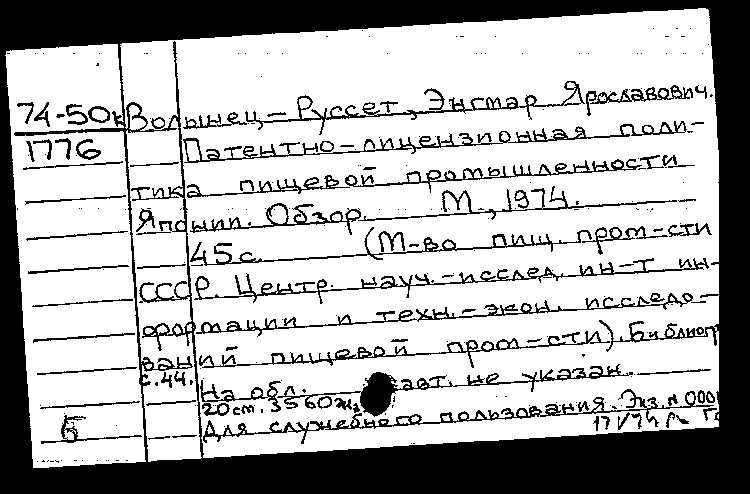 74-50к Волынец-Руссет, Энгмар Ярославович.
1776 Патентно-лицензионная поли-
тика пищевой промышленности
Японии. Обзор. М., 1974.
45 с. (М-во пищ. пром-сти
СССР. Центр. науч.-исслед. ин-т ин-
формации и техн.-экон. исследо-
ваний пищевой пром-сти). Библиогр
с.44.
На обл. авт. не указан.
20 см. 3560 экз
Б Для служебного пользования. Экз. N 000